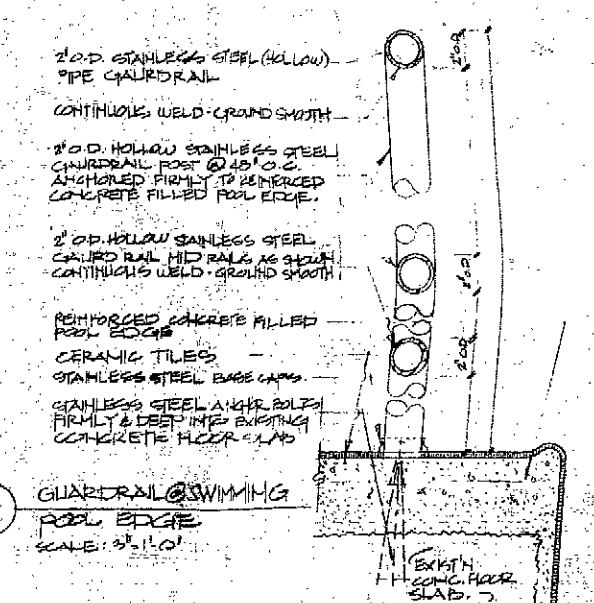 2" O.D. STAINLESS STEEL (HOLLOW)
PIPE GAURDRAIL
CONTINUOUS WELD - GROUND SMOOTH
2" O.D. HOLLOW STAINLESS STEEL
GAURDRAIL POST @ 48" O.C.
ANCHORED FIRMLY TO REINFORCED
CONCRETE FILLED POOL EDGE.
2" O.D. HOLLOW STAINLESS STEEL
GAURD RAIL MID RAILS AS SHOWN
CONTINUOUS WELD - GROUND SMOOTH
REINFORCED CONCRETE FILLED
POOL EDGE
CERAMIC TILES
STAINLESS STEEL BASE CAPS
STAINLESS STEEL ANCHOR BOLTS
FIRMLY & DEEP INTO EXISTING
CONCRETE FLOOR SLAB
GUARDRAIL @ SWIMMING
POOL EDGE
SCALE: 3"=1'-0"
2" O.D.
2" O.D.
2" O.D.
EXIST'N
CONC. FLOOR
SLAB.